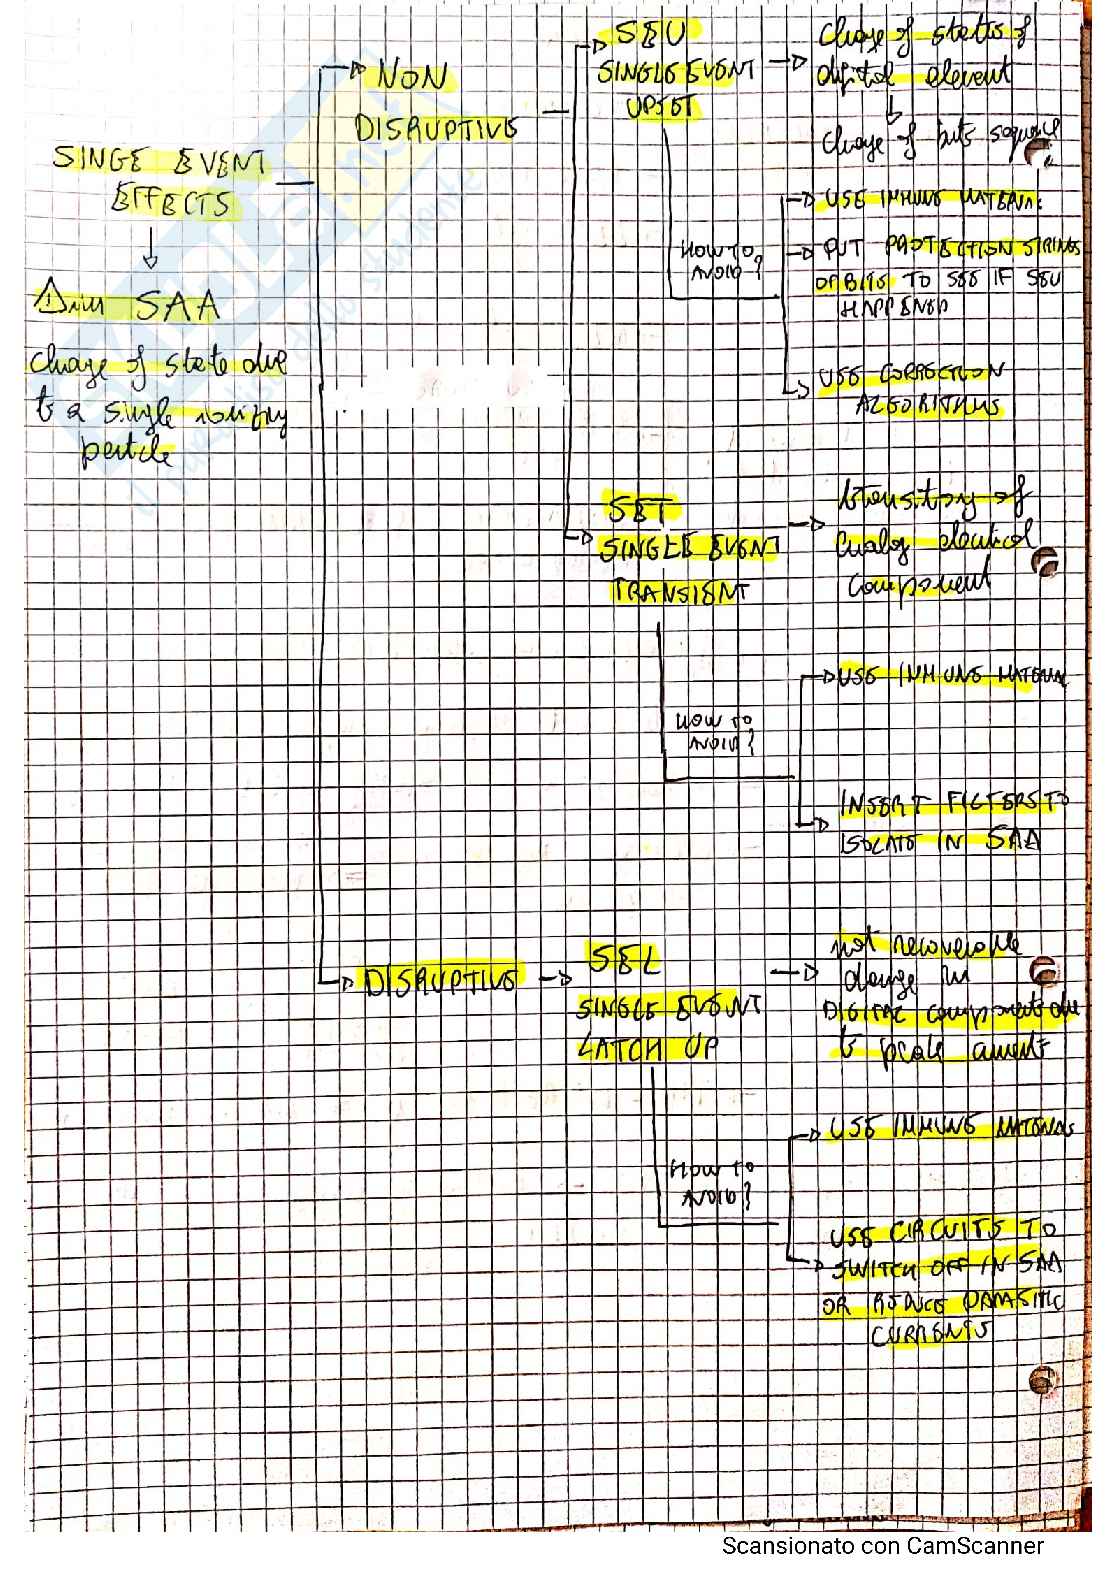 SINGE EVENT
EFFECTS
⚠ in SAA
change of state due
to a single ionizing
particle
NON
DISRUPTIVE
SEU
SINGLE EVENT
UPSET
change of status of
digital element
change of bits sequence
HOW TO
AVOID?
USE IMMUNE MATERIAL
PUT PROTECTION STRINGS
OF BITS TO SEE IF SEU
HAPPENED
USE CORRECTION
ALGORITHMS
SET
SINGLE EVENT
TRANSIENT
transitory of
analog electrical
component
HOW TO
AVOID?
USE IMMUNE MATERIAL
INSERT FILTERS TO
ISOLATE IN SAA
DISRUPTIVE
SEL
SINGLE EVENT
LATCH UP
not recoverable
damage in
DIGITAL component due
to current
HOW TO
AVOID?
USE IMMUNE MATERIALS
USE CIRCUITS TO
SWITCH OFF IN SAA
OR REDUCE PARASITIC
CURRENTS
Scansionato con CamScanner